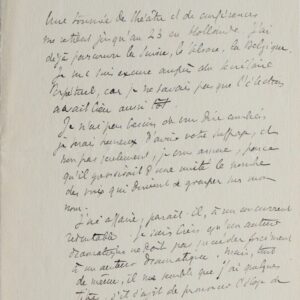 Une tournée de théâtre et de conférences
me retient jusqu'au 23 en Hollande. J'ai
déjà parcouru la Suisse, l'Alsace, la Belgique.
Je me suis excusé auprès du Secrétaire
Perpétuel, car je ne savais pas que l'élection
aurait lieu aussi tôt.
Je n'ai pas besoin de vous dire combien
je serai heureux d'avoir votre suffrage, et
non pas seulement, je vous assure, parce
qu'il grossirait d'une unité le nombre
des voix qui doivent se grouper sur mon
nom.
J'ai affaire, paraît-il, à un concurrent
redoutable. Je sais bien qu'un auteur
dramatique ne doit pas succéder forcément
à un auteur dramatique, mais, tout
de même, il me semble que j'ai quelques
titres, s'il s'agit de prononcer l'éloge de